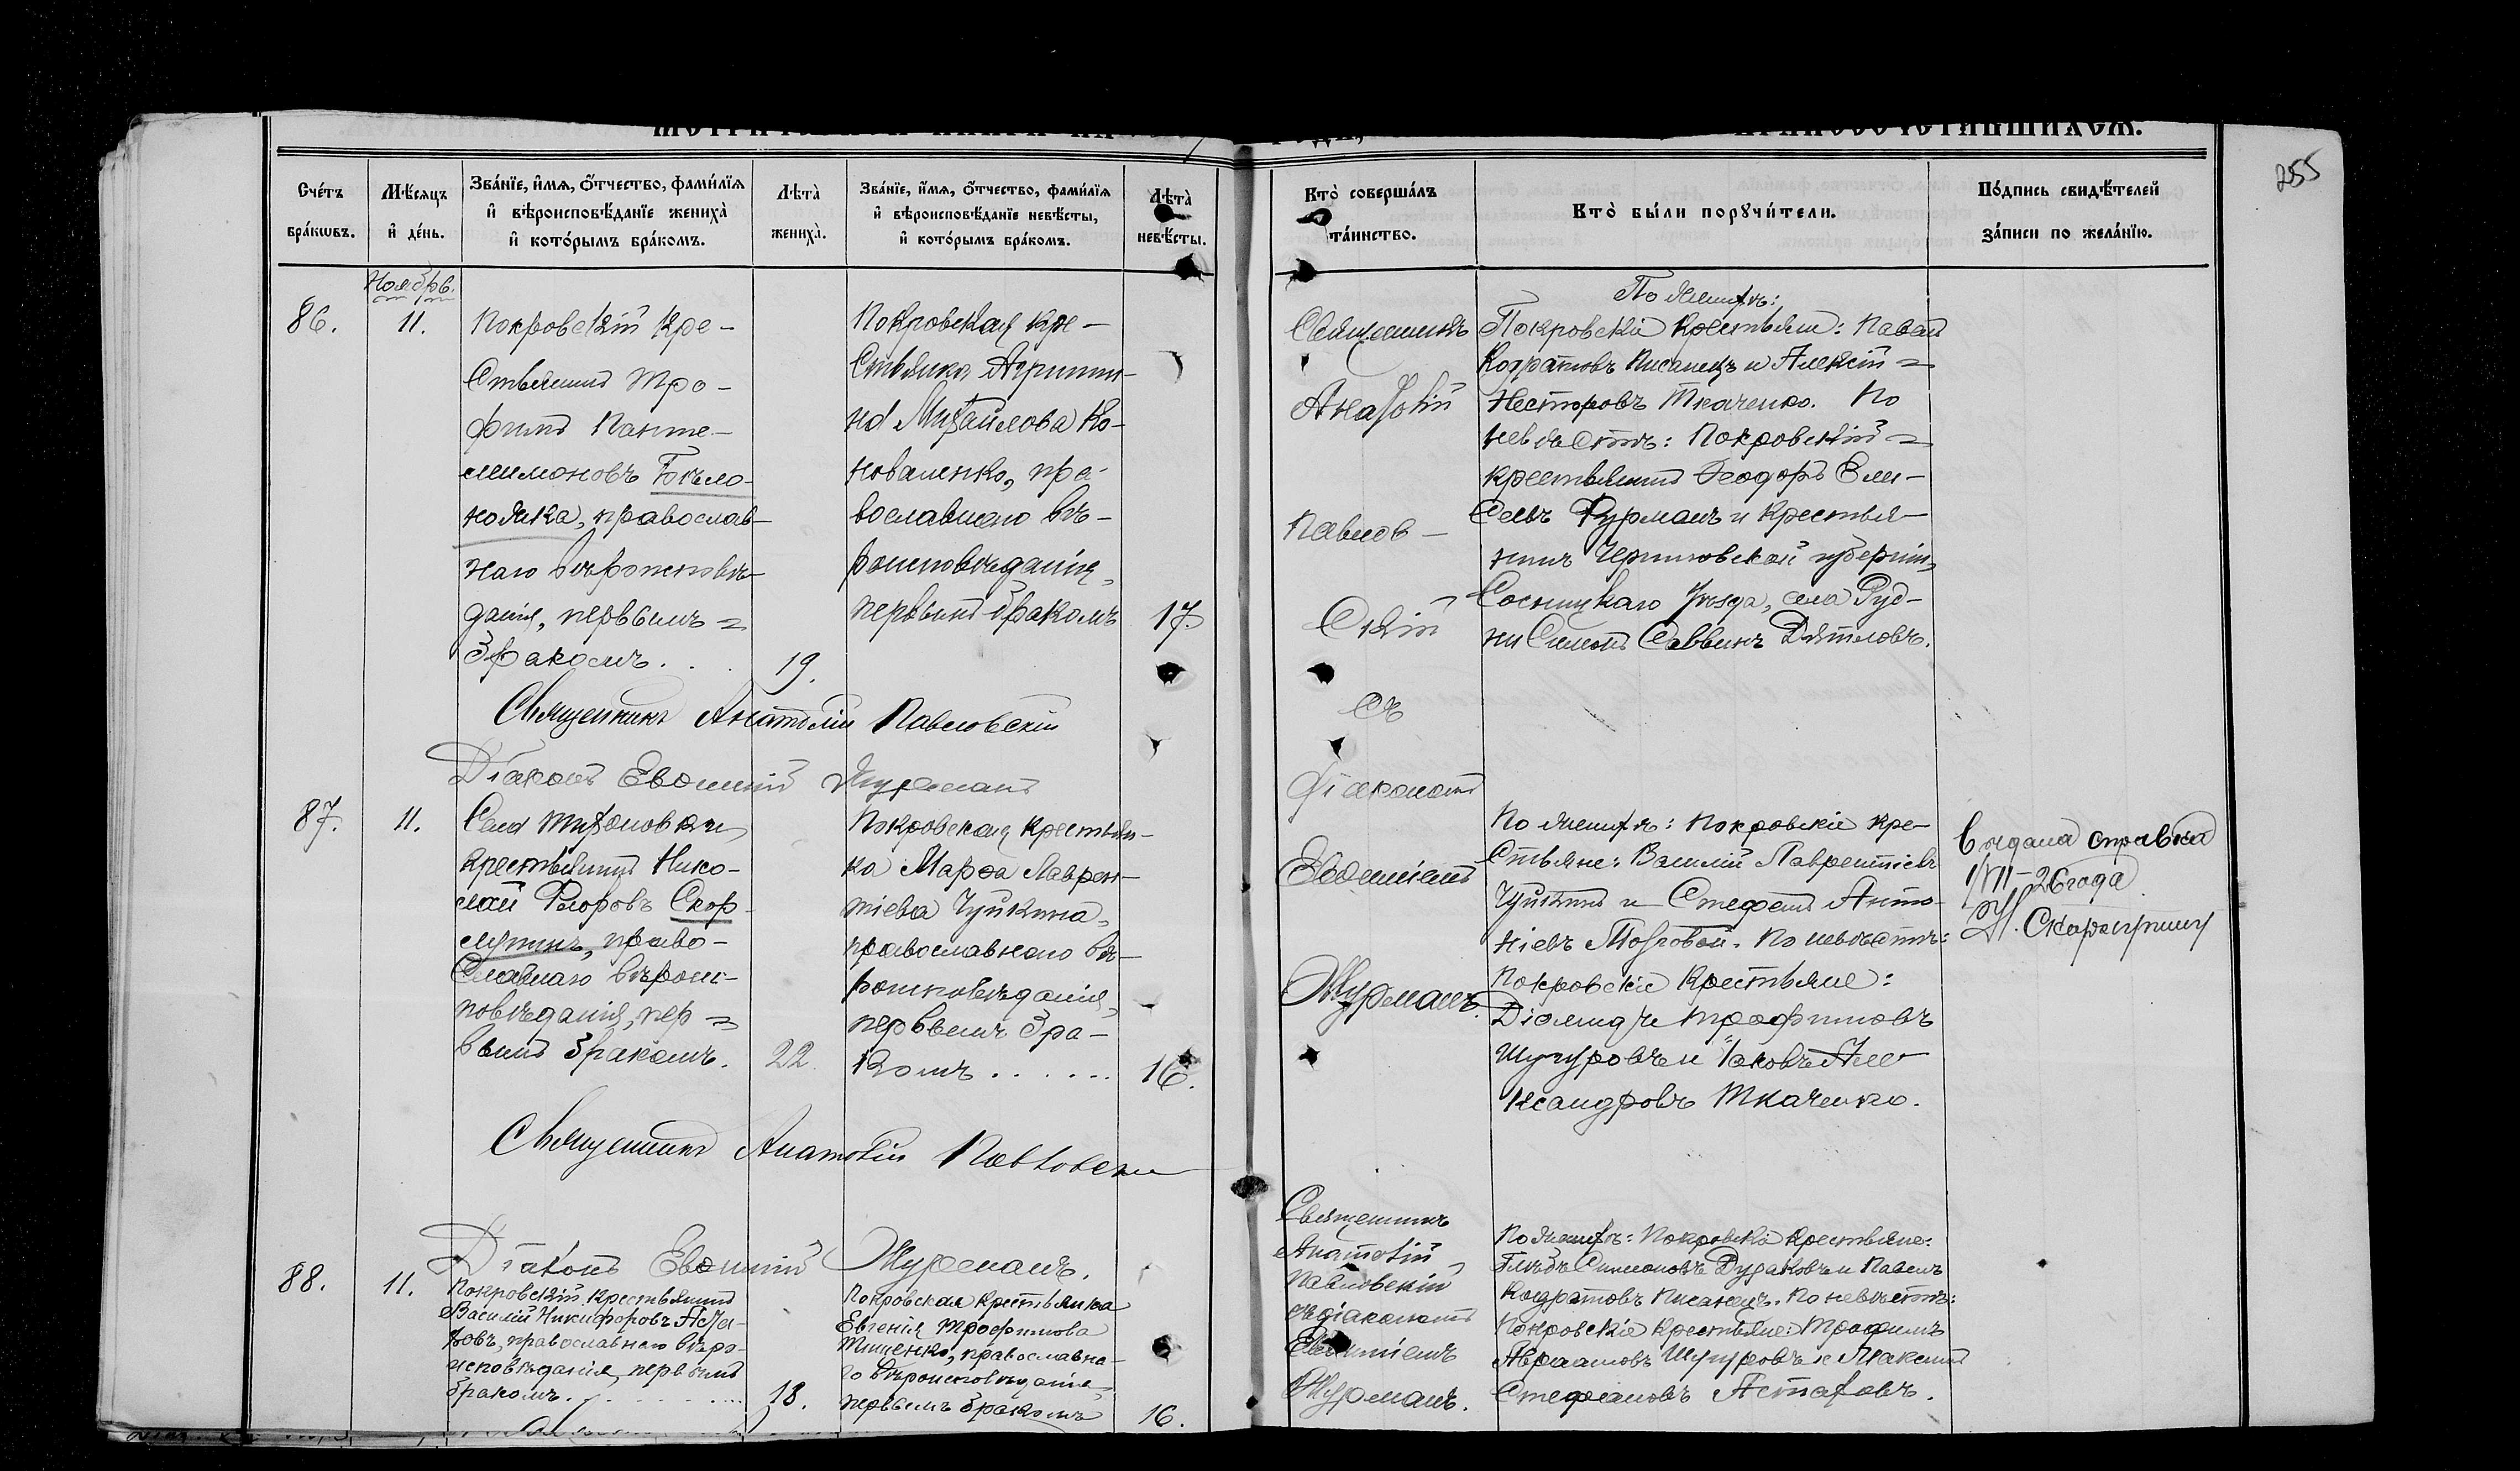 255
Счетъ браковъ.
Мѣсяцъ и день.
Званіе, имя, отчество, фамилія и вѣроисповѣданіе жениха и которымъ бракомъ.
Лѣта жениха.
Званіе, имя, отчество, фамилія и вѣроисповѣданіе невѣсты, и которымъ бракомъ.
Лѣта невѣсты.
Кто совершалъ таинство.
Кто были поручители.
Подпись свидѣтелей записи по желанію.
Ноябрь.
86.
11.
Покровскій кре-
стьянинъ Тро-
фимъ Панте-
леимоновъ
православ-
наго вѣроисповѣ-
данія, первымъ =
бракомъ. . .
19.
Покровская кре-
стьянка Агриппи-
на Михайлова Ко-
новаленко, пра-
вославнаго вѣ-
роисповѣданія,
первымъ бракомъ
17.
Священникъ
Анатолій
Павлов-
скій
съ
діакономъ
Евѳиміемъ
Журманъ.
По женихѣ:
Покровскіе крестьяне: Павелъ
Кодратовъ Писанецъ и Алексій =
Несторовъ Ткаченко. По
невѣстѣ: Покровскій =
крестьянинъ Ѳеодоръ Ели-
сеевъ Фурманъ и крестья-
нинъ Черниговской губерніи,
Сосницкаго уѣзда, села Руд-
ни Симонъ Саввинъ Дятловъ.
Священникъ Анатолій Павловскій
Діаконъ Евѳимій Журманъ
87.
11.
Села Тихоновки
крестьянинъ Нико-
лай Флоровъ Скор-
право-
славнаго вѣроис-
повѣданія, пер =
вымъ бракомъ.
22.
Покровская крестьян-
ка Марѳа Лаврен-
тіева Чуйкина,
православнаго вѣ-
роисповѣданія,
первымъ бра-
комъ . . . . . .
16.
По женихѣ: Покровскіе кре-
стьяне: Василій Лаврентіевъ
Чуйкинъ и Стефанъ Анто-
ніевъ Мозговой. По невѣстѣ:
Покровскіе крестьяне:
Діомидъ Трофимовъ
Шугуровъ и Іаковъ Але-
ксандровъ Ткаченко.
Выдана справка
1/VII-26 года
Священникъ Анатолій Павловскій
Діаконъ Евѳимій Журманъ.
88.
11.
Покровскій крестьянинъ
Василій Никифоровъ Аста-
ховъ, православнаго вѣро-
исповѣданія, первымъ
бракомъ. . . . . . . .
18.
Покровская крестьянка
Евгенія Трофимова
Тищенко, православна-
го вѣроисповѣданія,
первымъ бракомъ
16.
Священникъ
Анатолій
Павловскій
съ діакономъ
Евѳиміемъ
Журманъ.
По женихѣ: Покровскіе крестьяне:
Глѣбъ Симоновъ Дудаковъ и Павелъ
Кодратовъ Писанецъ. По невѣстѣ:
Покровскіе крестьяне: Трофимъ
Авраамовъ Шугуровъ и Максимъ
Стефановъ Астаховъ.